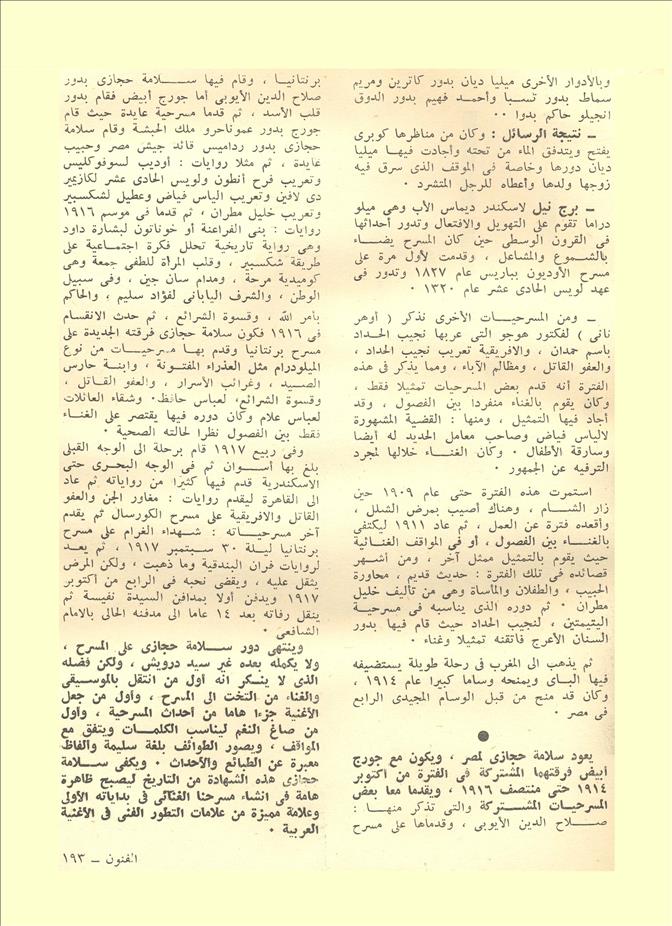 وبالأدوار الأخرى ميليا ديان بدور كاترين ومريم
سماط بدور تسبا وأحمد فهيم بدور الدوق
انجيلو حاكم بدوا ٠٠
ــ نتيجة الرسائل : وكان من مناظرها كوبرى
يفتح ويتدفق الماء من تحته وأجادت فيها ميليا
ديان دورها وخاصة فى الموقف الذى سرق فيه
زوجها ولدها وأعطاه للرجل المتشرد ٠
ــ برج نيل لاسكندر ديماس الأب وهى ميلو
دراما تقوم على التهويل والافتعال وتدور أحداثها
فى القرون الوسطى حين كان المسرح يضاء
بالشموع والمشاعل ، وقدمت لأول مرة على
مسرح الأوديون بباريس عام ١٨٢٧ وتدور فى
عهد لويس الحادى عشر عام ١٣٢٠ ٠
ــ ومن المسرحيات الأخرى نذكر ( أوهر
نانى ) لفكتور هوجو التى عربها نجيب الحداد
باسم حمدان ، والافريقية تعريب نجيب الحداد ،
والعفو القاتل ، ومظالم الآباء ، ومما يذكر فى هذه
الفترة أنه قدم بعض المسرحيات تمثيلا فقط ،
وكان يقوم بالغناء منفردا بين الفصول ، وقد
أجاد فيها التمثيل ، ومنها : القضية المشهورة
لالياس فياض وصاحب معامل الحديد له أيضا
وسارقة الأطفال ٠ وكان الغناء خلالها لمجرد
الترفيه عن الجمهور ٠
استمرت هذه الفترة حتى عام ١٩٠٩ حين
زار الشام ، وهناك أصيب بمرض الشلل ،
وأقعده فترة عن العمل ، ثم عاد ١٩١١ ليكتفى
بالغناء بين الفصول ، أو فى المواقف الغنائية
حيث يقوم بالتمثيل ممثل آخر ، ومن أشهر
قصائده فى تلك الفترة : حديث قديم ، محاورة
الحبيب ، والطفلان والمأساة وهى من تأليف خليل
مطران ٠ ثم دوره الذى يناسبه فى مسرحية
اليتيمتين ، لنجيب الحداد حيث قام فيها بدور
السنان الأعرج فأتقنه تمثيلا وغناء ٠
ثم يذهب الى المغرب فى رحلة طويلة يستضيفه
فيها الباى ويمنحه وساما كبيرا عام ١٩١٤ ،
وكان قد منح من قبل الوسام المجيدى الرابع
فى مصر ٠
يعود سلامة حجازى لمصر ، ويكون مع جورج
أبيض فرقتهما المشتركة فى الفترة من أكتوبر
١٩١٤ حتى منتصف ١٩١٦ ، ويقدما معا بعض
المسرحيات المشتركة والتى تذكر منها :
صلاح الدين الأيوبى ، وقدماها على مسرح
برنتانيا ، وقام فيها سلامة حجازى بدور
صلاح الدين الأيوبى أما جورج أبيض فقام بدور
قلب الأسد ، ثم قدما مسرحية عايدة حيث قام
جورج بدور عموناحرو ملك الحبشة وقام سلامة
حجازى بدور رداميس قائد جيش مصر وحبيب
عايدة ، ثم مثلا روايات : أوديب لسوفوكليس
وتعريب فرح أنطون ولويس الحادى عشر لكازيمير
دى لافين وتعريب الياس فياض وعطيل لشكسبير
وتعريب خليل مطران ، ثم قدما فى موسم ١٩١٦
روايات : بنى الفراعنة أو خوناتون لبشارة داود
وهى رواية تاريخية تحلل فكرة اجتماعية على
طريقة شكسبير ، وقلب المرأة للطفى جمعة وهى
كوميدية مرحة ، ومدام سان جين ، وفى سبيل
الوطن ، والشرف اليابانى لفؤاد سليم ، والحاكم
بأمر الله ، وقسوة الشرائع ، ثم حدث الانقسام
فى ١٩١٦ فكون سلامة حجازى فرقته الجديدة على
مسرح برنتانيا وقدم بها مسرحيات من نوع
الميلودرام مثل العذراء المفتونة ، وابنة حارس
الصيد ، وغرائب الأسرار ، والعفو القاتل ،
وقسوة الشرائع، لعباس حافظ٠ وشقاء العائلات
لعباس علام وكان دوره فيها يقتصر على الغناء
فقط بين الفصول نظرا لحالته الصحية ٠
وفى ربيع ١٩١٧ قام برحلة الى الوجه القبلى
بلغ بها أسوان ثم فى الوجه البحرى حتى
الاسكندرية قدم فيها كثيرا من رواياته ثم عاد
الى القاهرة ليقدم روايات : مغاور الجن والعفو
القاتل والافريقية على مسرح الكورسال ثم يقدم
آخر مسرحياته : شهداء الغرام على مسرح
برنتانيا ليلة ٣٠ سبتمبر ١٩١٧ ، ثم يعد
لروايات فران البندقية وما ذهبت ، ولكن المرض
يثقل عليه ، ويقضى نحبه فى الرابع من أكتوبر
١٩١٧ ويدفن أولا بمدافن السيدة نفيسة ثم
ينقل رفاته بعد ١٤ عاما الى مدفنه الحالى بالامام
الشافعى ٠
وينتهى دور سلامة حجازى على المسرح ،
ولا يكمله بعده غير سيد درويش ، ولكن فضله
الذى لا ينكر أنه أول من انتقل بالموسيقى
والغناء من التخت الى المسرح ، وأول من جعل
الأغنية جزءا هاما من أحداث المسرحية ، وأول
من صاغ النغم ليناسب الكلمات ويتفق مع
المواقف ، ويصور الطوائف بلغة سليمة وألفاظ
معبرة عن الطبائع والأحداث ٠ ويكفى سلامة
حجازى هذه الشهادة من التاريخ ليصبح ظاهرة
هامة فى انشاء مسرحنا الغنائى فى بداياته الأولى
وعلامة مميزة من علامات التطور الفنى فى الأغنية
العربية ٠
الفنون ــ ١٩٣